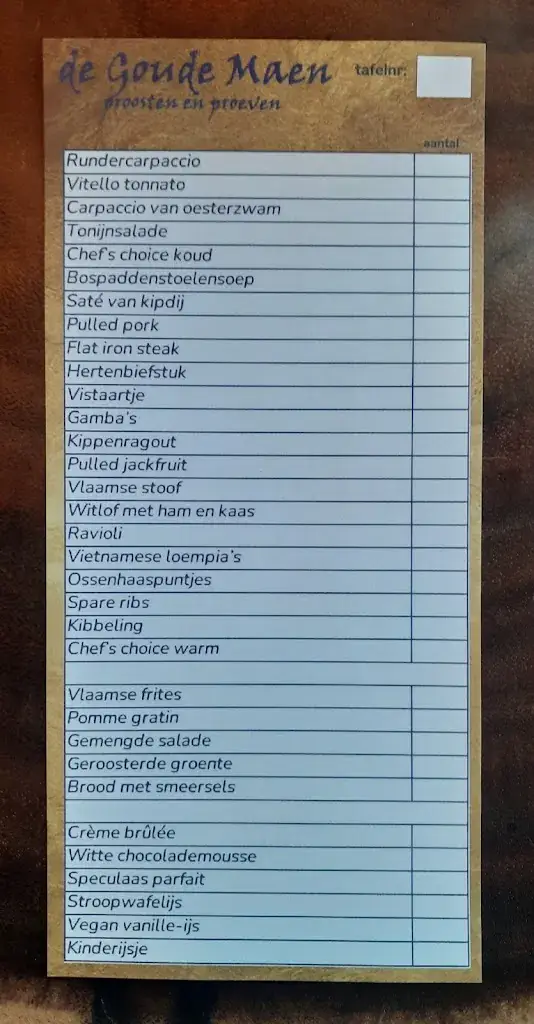 de Goude Maen
tafelnr:
proosten en proeven
aantal
Rundercarpaccio
Vitello tonnato
Carpaccio van oesterzwam
Tonijnsalade
Chef's choice koud
Bospaddenstoelensoep
Saté van kipdij
Pulled pork
Flat iron steak
Hertenbiefstuk
Vistaartje
Gamba's
Kippenragout
Pulled jackfruit
Vlaamse stoof
Witlof met ham en kaas
Ravioli
Vietnamese loempia's
Ossenhaaspuntjes
Spare ribs
Kibbeling
Chef's choice warm
Vlaamse frites
Pomme gratin
Gemengde salade
Geroosterde groente
Brood met smeersels
Crème brûlée
Witte chocolademousse
Speculaas parfait
Stroopwafelijs
Vegan vanille-ijs
Kinderijsje